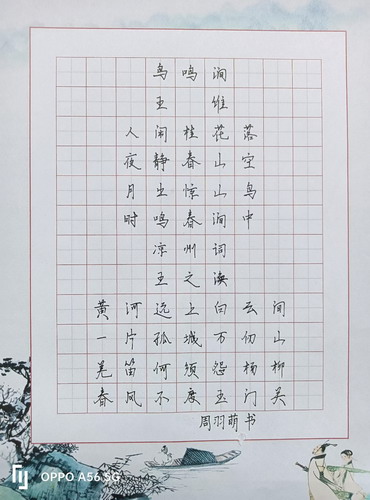 鸟鸣涧
王维
人闲桂花落
夜静春山空
月出惊山鸟
时鸣春涧中
凉州词
王之涣
黄河远上白云间
一片孤城万仞山
羌笛何须怨杨柳
春风不度玉门关
周羽萌书
OPPO A56 5G